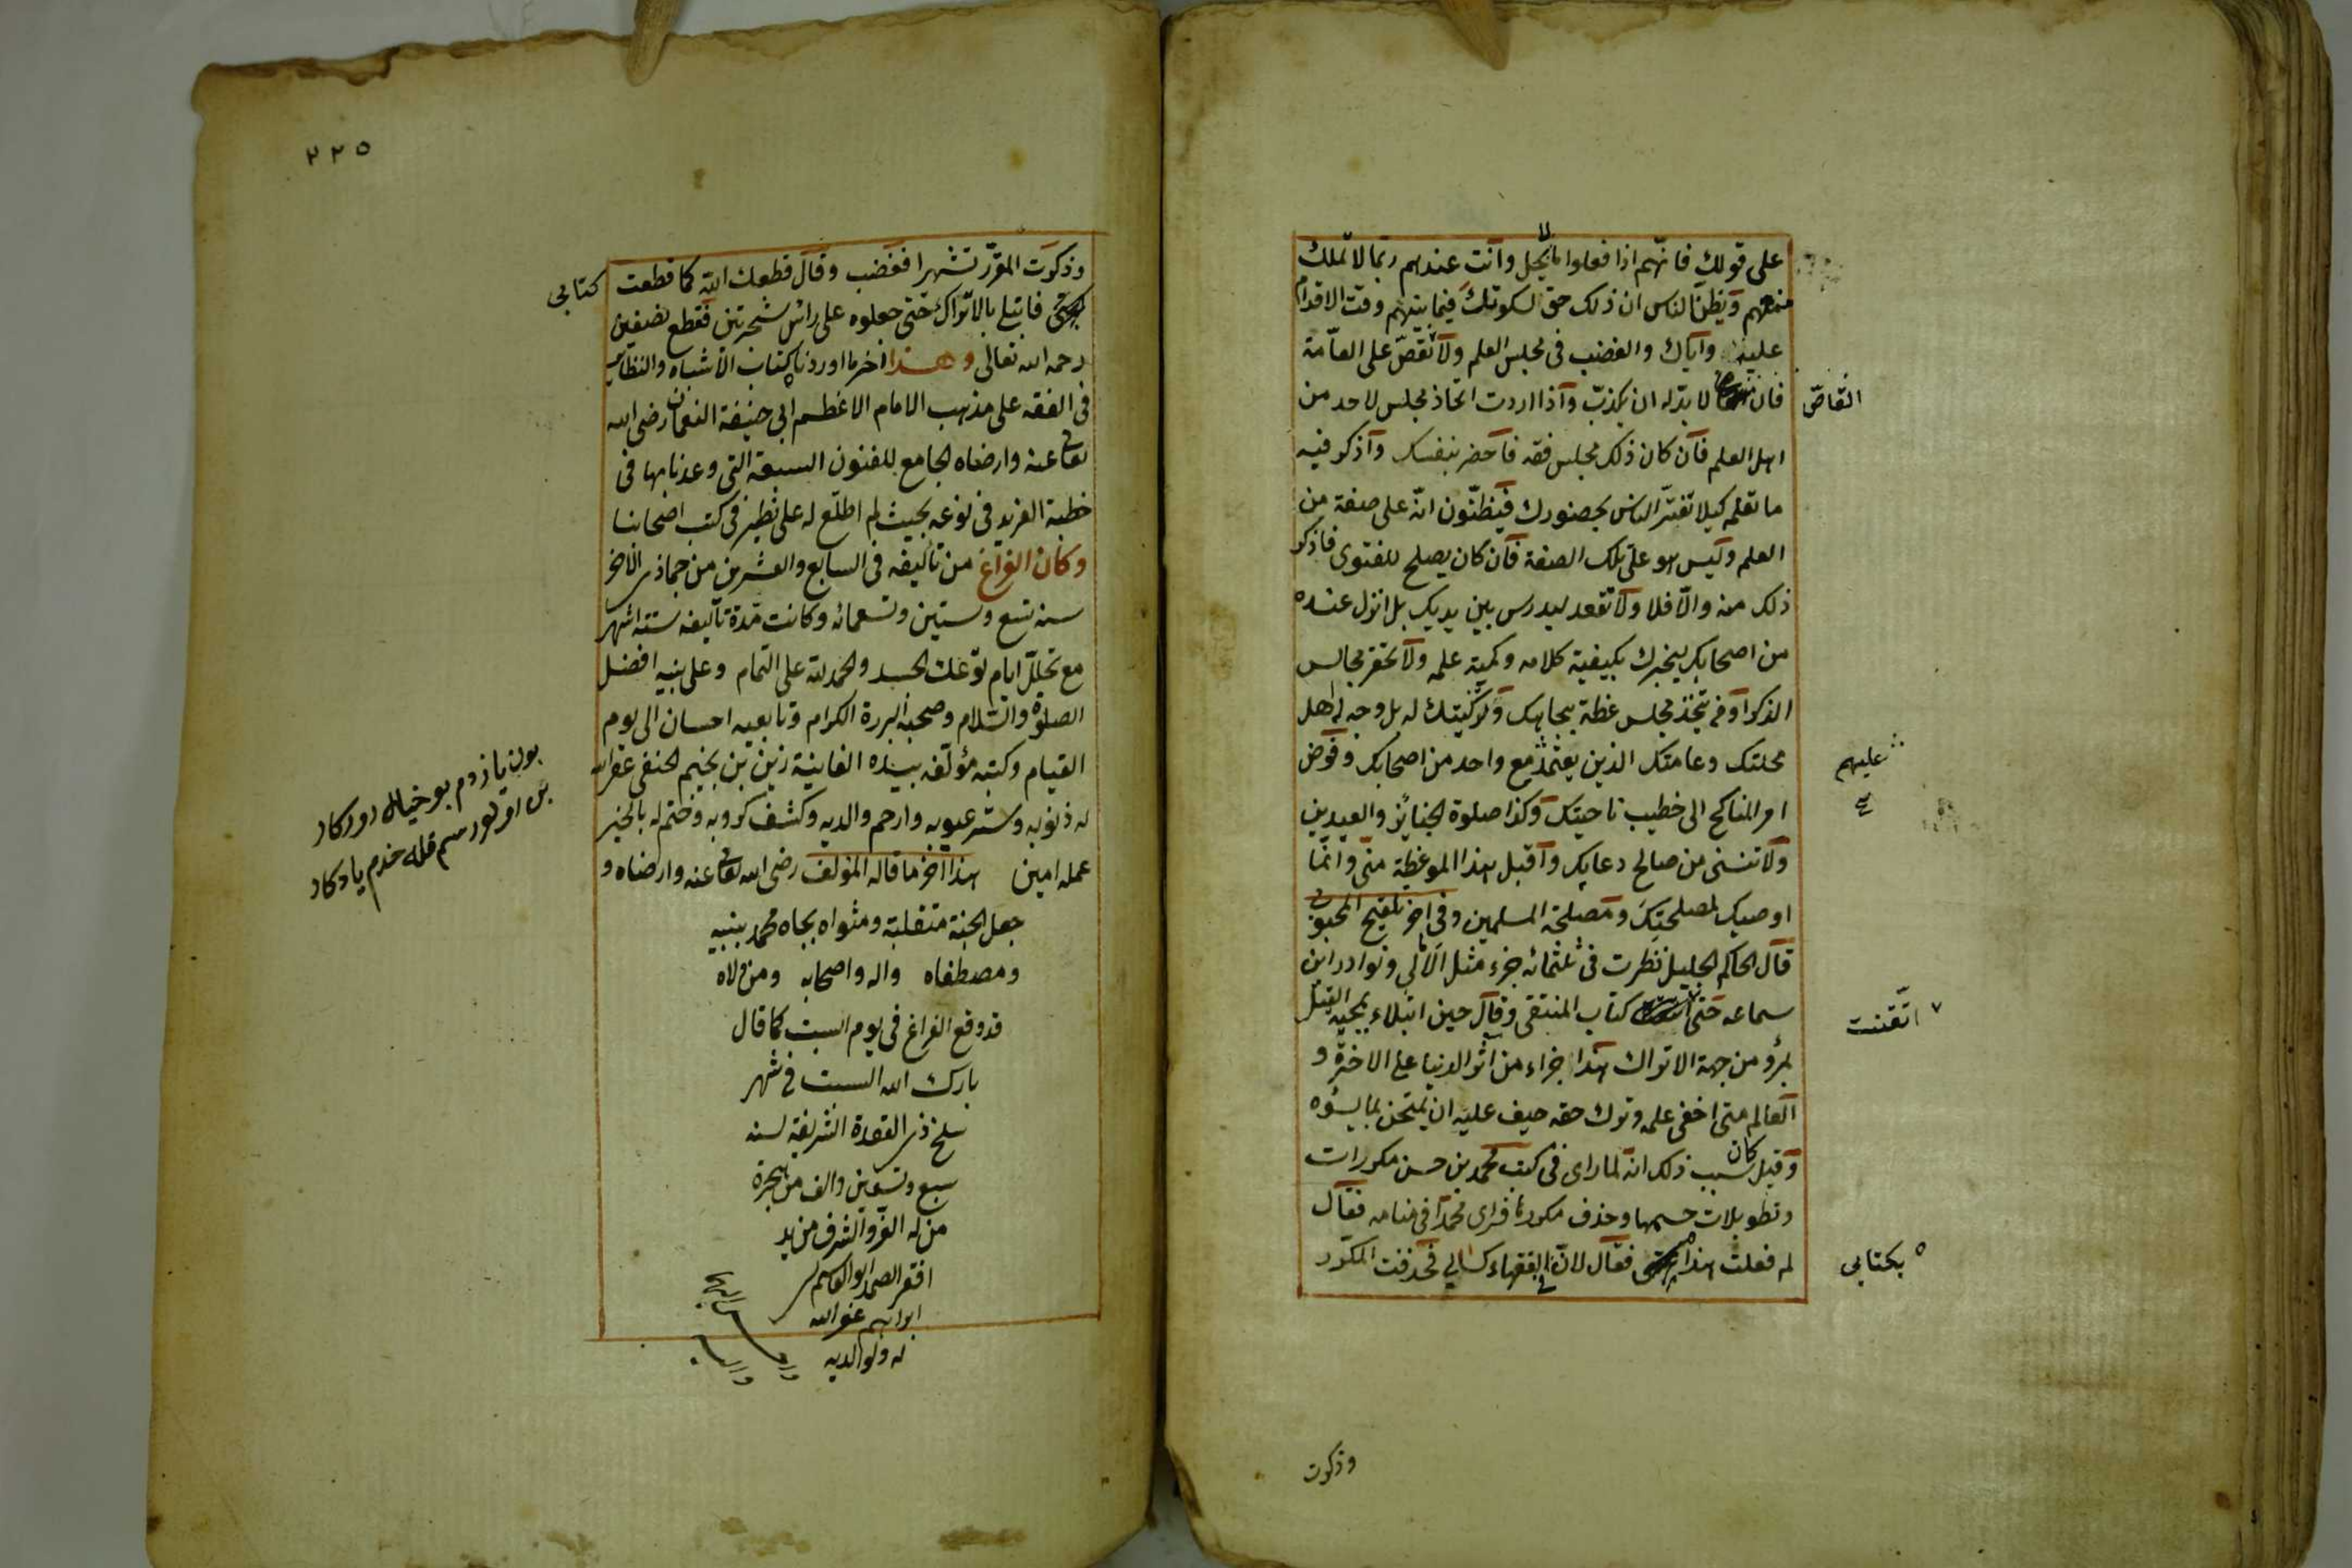 على قولك فانهم اذا فعلوا ما يخل وانت عندهم ربما لا تملك
منعهم ويظن الناس ان ذلك حق لسكوتك فيما بينهم وقت الاقدام
عليه واياك والغضب فى مجلس العلم ولا تقص على العامة
فان لا بد له ان يكذب واذا اردت اتخاذ مجلس لاحد من
القاص
اهل العلم فان كان ذلك مجلس فقه فاحضر بنفسك واذكر فيه
ما تعلمه كيلا تغتر الناس بحضورك فيظنون انه على صفة من
العلم وليس هو على تلك الصفة فان كان يصلح للفتوى فاذكر
ذلك منه والا فلا ولا تقعد ليدرس بين يديك بل انزل عنده
من اصحابك ليخبرك بكيفية كلامه وكمية علمه ولا تحقر مجالس
الذكر او من يتخذ مجلس عظة بجاهك وتزكيتك له بل وجه اهل
محلتك وعامتك الذين يعتمد مع واحد من اصحابك وفوض
عليهم
امر المناكح الى خطيب ناحيتك وكذا صلوة الجنائز والعيدين
ولا تنسنى من صالح دعايك واقبل هذا الموعظة منى وانما
اوصيك لمصلحتك ومصلحة المسلمين وفى اخر تلقيح المحبوبى
قال الحاكم الجليل نظرت فى ثلثمائه جزء مثل الامالى ونوادر ابن
سماعه حتى كتاب المنتقى وقال حين ابتلاء بمحبه القتل
اتقنت
بمرو من جهة الاتراك هذا جزاء من اثر الدنيا على الاخرة و
العالم متى اخفى علمه وترك حقه خيف عليه ان يمتحن بما يسؤه
وقيل كان سبب ذلك انه لما راى فى كتب محمد بن حسن مكررات
وتطويلات حسمها وحذف مكررها فراى محمدا فى منامه فقال
لم فعلت هذا فقال لان الفقهاء كسالى فحذفت المكرر
بكتابى
وذكرت
٢٢٥
وذكرت المقرر تشهرا فغضب وقال قطعك الله كما قطعت
كتابى
فابتلى بالاتراك حتى جعلوه على رأس شجرتين فقطع نصفين
رحمه الله تعالى وهذا اخر ما اوردناه كتاب الاشباه والنظاير
فى الفقه على مذهب الامام الاعظم ابى حنيفة النعمان رضى الله
تعالى عنه وارضاه الجامع للفنون السبعة التى وعدنا بها فى
خطبة الفريد فى نوعه بحيث لم اطلع له على نظير فى كتب اصحابنا
وكان الفراغ من تأليفه فى السابع والعشرين من جماذى الاخر
سنه تسع وستين وتسعمائه وكانت مدة تأليفه ستة اشهر
مع تخلل ايام توعك الجسد والحمد لله على التمام وعلى نبيه افضل
الصلوة والسلام وصحبه البررة الكرام وتابعيه احسان الى يوم
القيام وكتبه مؤلفه بيده الفانية زين بن نجيم الحنفى غفر الله
له ذنوبه وستر عيوبه وارحم والديه وكشف كروبه وختم له بالخير
عمله امين هذا اخر ما قاله المؤلف رضى الله تعالى عنه وارضاه و
جعل الجنة متقلبة ومثواه بجاه محمد بنبيه
ومصطفاه واله واصحابه ومن والاه
قد وقع الفراغ فى يوم السبت كما قال
بارك الله السبت فى شهر
سلخ ذى القعدة الشريفة لسنه
سبع وتسعين والف من هجرة
من له العز والشرف من يد
افقر الصمد ابو القاسم
ابراهيم غفر الله
له ولوالديه
بون يازدم بو خياله